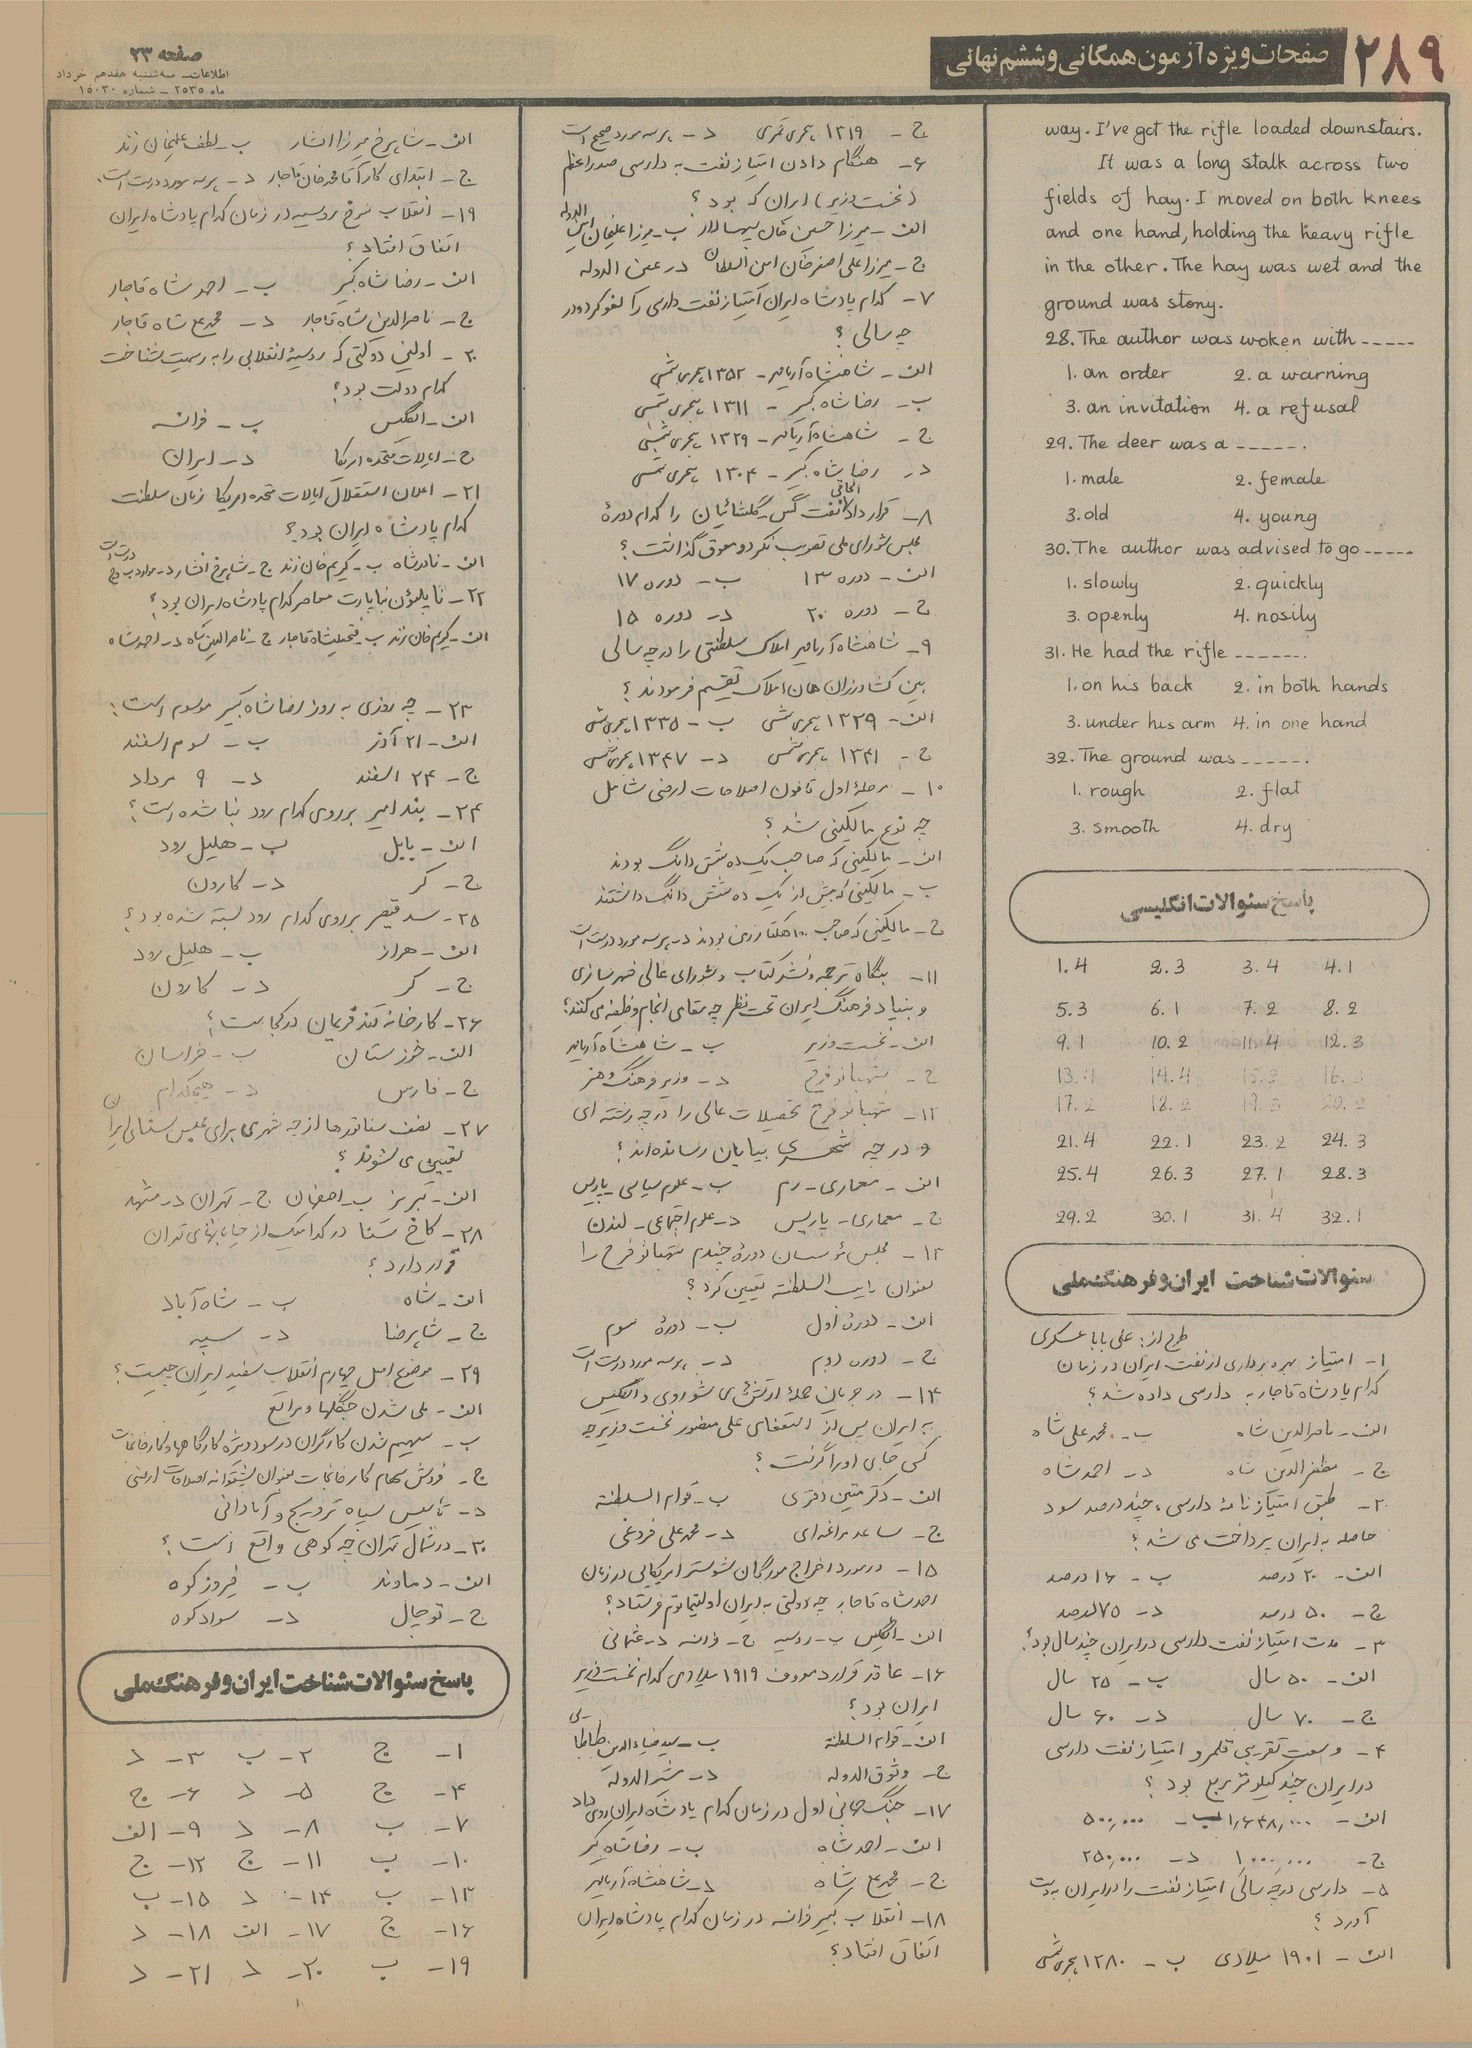 ۲۸۹
صفحات ویژه آزمون همگانی و ششم نهائی
صفحه ۲۳
اطلاعات ـ سه‌شنبه هفدهم خرداد
ماه ۲۵۳۵ ـ شماره ۱۵۰۳۰
way. I've got the rifle loaded downstairs.
It was a long stalk across two
fields of hay. I moved on both knees
and one hand, holding the heavy rifle
in the other. The hay was wet and the
ground was stony.
28. The author was woken with -----
1. an order 2. a warning
3. an invitation 4. a refusal
29. The deer was a -----.
1. male 2. female
3. old 4. young
30. The author was advised to go -----
1. slowly 2. quickly
3. openly 4. nosily
31. He had the rifle ------.
1. on his back 2. in both hands
3. under his arm 4. in one hand
32. The ground was -----.
1. rough 2. flat
3. smooth 4. dry
پاسخ سئوالات انگلیسی
1. 4 2. 3 3. 4 4. 1
5. 3 6. 1 7. 2 8. 2
9. 1 10. 2 11. 4 12. 3
13. 14. 4 15. 2 16. 3
17. 2 18. 2 19. 3 20. 2
21. 4 22. 1 23. 2 24. 3
25. 4 26. 3 27. 1 28. 3
29. 2 30. 1 31. 4 32. 1
سئوالات شناخت ایران و فرهنگ ملی
طرح از: علی بابا عسکری
۱ـ امتیاز بهره‌برداری از نفت ایران در زمان
کدام پادشاه قاجار به دارسی داده شد؟
الف ـ ناصرالدین شاه ب ـ محمدعلی شاه
ج ـ مظفرالدین شاه د ـ احمدشاه
۲ـ طبق امتیازنامهٔ دارسی، چند درصد سود
حاصله به ایران پرداخت می شد؟
الف ـ ۲۰ درصد ب ـ ۱۶ درصد
ج ـ ۵۰ درصد د ـ ۷۵ درصد
۳ـ مدت امتیاز نفت دارسی در ایران چند سال بود؟
الف ـ ۵۰ سال ب ـ ۲۵ سال
ج ـ ۷۰ سال د ـ ۶۰ سال
۴ـ وسعت تقریبی قلمرو امتیاز نفت دارسی
در ایران چند کیلومتر مربع بود؟
الف ـ ۱,۶۴۸,۰۰۰ ب ـ ۵۰۰,۰۰۰
ج ـ ۱,۰۰۰,۰۰۰ د ـ ۲۵۰,۰۰۰
۵ـ دارسی در چه سالی امتیاز نفت را در ایران بدست
آورد؟
الف ـ ۱۹۰۱ میلادی ب ـ ۱۲۸۰ هجری شمسی
ج ـ ۱۳۱۹ هجری قمری د ـ هر سه مورد صحیح است
۶ـ هنگام دادن امتیاز نفت به دارسی صدراعظم
(نخست وزیر) ایران که بود؟
الف ـ میرزا حسین خان سپهسالار ب ـ میرزا علیخان امین الدوله
ج ـ میرزا علی اصغرخان امین السلطان د ـ عین الدوله
۷ـ کدام پادشاه ایران امتیاز نفت دارسی را لغو کرد و در
چه سالی؟
الف ـ شاهنشاه آریامهر ـ ۱۳۵۲ هجری شمسی
ب ـ رضاشاه کبیر ـ ۱۳۱۱ هجری شمسی
ج ـ شاهنشاه آریامهر ـ ۱۳۲۹ هجری شمسی
د ـ رضاشاه کبیر ـ ۱۳۰۴ هجری شمسی
۸ـ قرارداد الحاقی نفت گس ـ گلشائیان را کدام دورهٔ
مجلس شورای ملی تصویب نکرد و معوق گذاشت؟
الف ـ دوره ۱۳ ب ـ دوره ۱۷
ج ـ دوره ۲۰ د ـ دوره ۱۵
۹ـ شاهنشاه آریامهر املاک سلطنتی را در چه سالی
بین کشاورزان همان املاک تقسیم فرمودند؟
الف ـ ۱۳۲۹ هجری شمسی ب ـ ۱۳۳۵ هجری شمسی
ج ـ ۱۳۴۱ هجری شمسی د ـ ۱۳۴۷ هجری شمسی
۱۰ـ مرحلهٔ اول قانون اصلاحات ارضی شامل
چه نوع مالکینی شد؟
الف ـ مالکینی که صاحب یک ده شش دانگ بودند
ب ـ مالکینی که بیش از یک ده شش دانگ داشتند
ج ـ مالکینی که صاحب ۱۰۰ هکتار زمین بودند د ـ هر سه مورد درست است
۱۱ـ بنگاه ترجمه و نشر کتاب و شورای عالی شهرسازی
و بنیاد فرهنگ ایران تحت نظر چه مقامی انجام وظیفه می کنند؟
الف ـ نخست وزیر ب ـ شاهنشاه آریامهر
ج ـ شهبانو فرح د ـ وزیر فرهنگ و هنر
۱۲ـ شهبانو فرح تحصیلات عالی را در چه رشته ای
و در چه شهری بپایان رسانده‌اند؟
الف ـ معماری ـ رم ب ـ علوم سیاسی ـ پاریس
ج ـ معماری ـ پاریس د ـ علوم اجتماعی ـ لندن
۱۳ـ مجلس مؤسسان دورهٔ چندم شهبانو فرح را
بعنوان نایب السلطنه تعیین کرد؟
الف ـ دورهٔ اول ب ـ دورهٔ سوم
ج ـ دوره دوم د ـ هر سه مورد درست است
۱۴ـ در جریان حملهٔ ارتشهای شوروی و انگلیس
به ایران پس از استعفای علی منصور نخست وزیر چه
کسی جای او را گرفت؟
الف ـ دکتر متین دفتری ب ـ قوام السلطنه
ج ـ ساعد مراغه‌ای د ـ محمدعلی فروغی
۱۵ـ در مورد اخراج مورگان شوستر امریکائی در زمان
احمدشاه قاجار چه دولتی به ایران اولتیماتوم فرستاد؟
الف ـ انگلیس ب ـ روسیه ج ـ فرانسه د ـ عثمانی
۱۶ـ عاقد قرارداد معروف ۱۹۱۹ میلادی کدام نخست وزیر
ایران بود؟
الف ـ قوام السلطنه ب ـ سید ضیاءالدین طباطبائی
ج ـ وثوق الدوله د ـ مشیرالدوله
۱۷ـ جنگ جهانی اول در زمان کدام پادشاه ایران روی داد
الف ـ احمدشاه ب ـ رضاشاه کبیر
ج ـ محمدعلی شاه د ـ شاهنشاه آریامهر
۱۸ـ انقلاب کبیر فرانسه در زمان کدام پادشاه ایران
اتفاق افتاد؟
الف ـ شاهرخ میرزا افشار ب ـ لطفعلیخان زند
ج ـ ابتدای کار آقا محمدخان قاجار د ـ هر سه مورد درست است.
۱۹ـ انقلاب سرخ روسیه در زمان کدام پادشاه ایران
اتفاق افتاد؟
الف ـ رضاشاه کبیر ب ـ احمدشاه قاجار
ج ـ ناصرالدین شاه قاجار د ـ محمدعلی شاه قاجار
۲۰ـ اولین دولتی که روسیهٔ انقلابی را به رسمیت شناخت
کدام دولت بود؟
الف ـ انگلیس ب ـ فرانسه
ج ـ ایالات متحده امریکا د ـ ایران
۲۱ـ اعلان استقلال ایالات متحده امریکا زمان سلطنت
کدام پادشاه ایران بود؟
الف ـ نادرشاه ب ـ کریم خان زند ج ـ شاهرخ افشار د ـ موارد ب و ج درست است
۲۲ـ ناپلئون بناپارت معاصر کدام پادشاه ایران بود؟
الف ـ کریم خان زند ب ـ فتحعلیشاه قاجار ج ـ ناصرالدین شاه د ـ احمدشاه
۲۳ـ چه روزی به روز رضاشاه کبیر موسوم است:
الف ـ ۲۱ آذر ب ـ سوم اسفند
ج ـ ۲۴ اسفند د ـ ۹ مرداد
۲۴ـ بند امیر بر روی کدام رود بنا شده است؟
الف ـ بابل ب ـ هلیل رود
ج ـ کر د ـ کارون
۲۵ـ سد قیصر بر روی کدام رود بسته شده بود؟
الف ـ هراز ب ـ هلیل رود
ج ـ کر د ـ کارون
۲۶ـ کارخانه قند فریمان در کجاست؟
الف ـ خوزستان ب ـ خراسان
ج ـ فارس د ـ هیچکدام
۲۷ـ نصف سناتورها از چه شهری برای مجلس سنای ایران
تعیین می شوند؟
الف ـ تبریز ب ـ اصفهان ج ـ تهران د ـ مشهد
۲۸ـ کاخ سنا در کدامیک از خیابانهای تهران
قرار دارد؟
الف ـ شاه ب ـ شاه آباد
ج ـ شاهرضا د ـ سپه
۲۹ـ موضوع اصل چهارم انقلاب سفید ایران چیست؟
الف ـ ملی شدن جنگلها و مراتع
ب ـ سهیم شدن کارگران در سود ویژه کارگاهها و کارخانجات
ج ـ فروش سهام کارخانجات بعنوان پشتوانه اصلاحات ارضی
د ـ تأسیس سپاه ترویج و آبادانی
۳۰ـ در شمال تهران چه کوهی واقع است؟
الف ـ دماوند ب ـ فیروزکوه
ج ـ توچال د ـ سوادکوه
پاسخ سئوالات شناخت ایران و فرهنگ ملی
۱ـ ج ۲ـ ب ۳ـ د
۴ـ ج ۵ـ د ۶ـ ج
۷ـ ب ۸ـ د ۹ـ الف
۱۰ـ ب ۱۱ـ ج ۱۲ـ ج
۱۳ـ ب ۱۴ـ د ۱۵ـ ب
۱۶ـ ج ۱۷ـ الف ۱۸ـ د
۱۹ـ ب ۲۰ـ د ۲۱ـ د